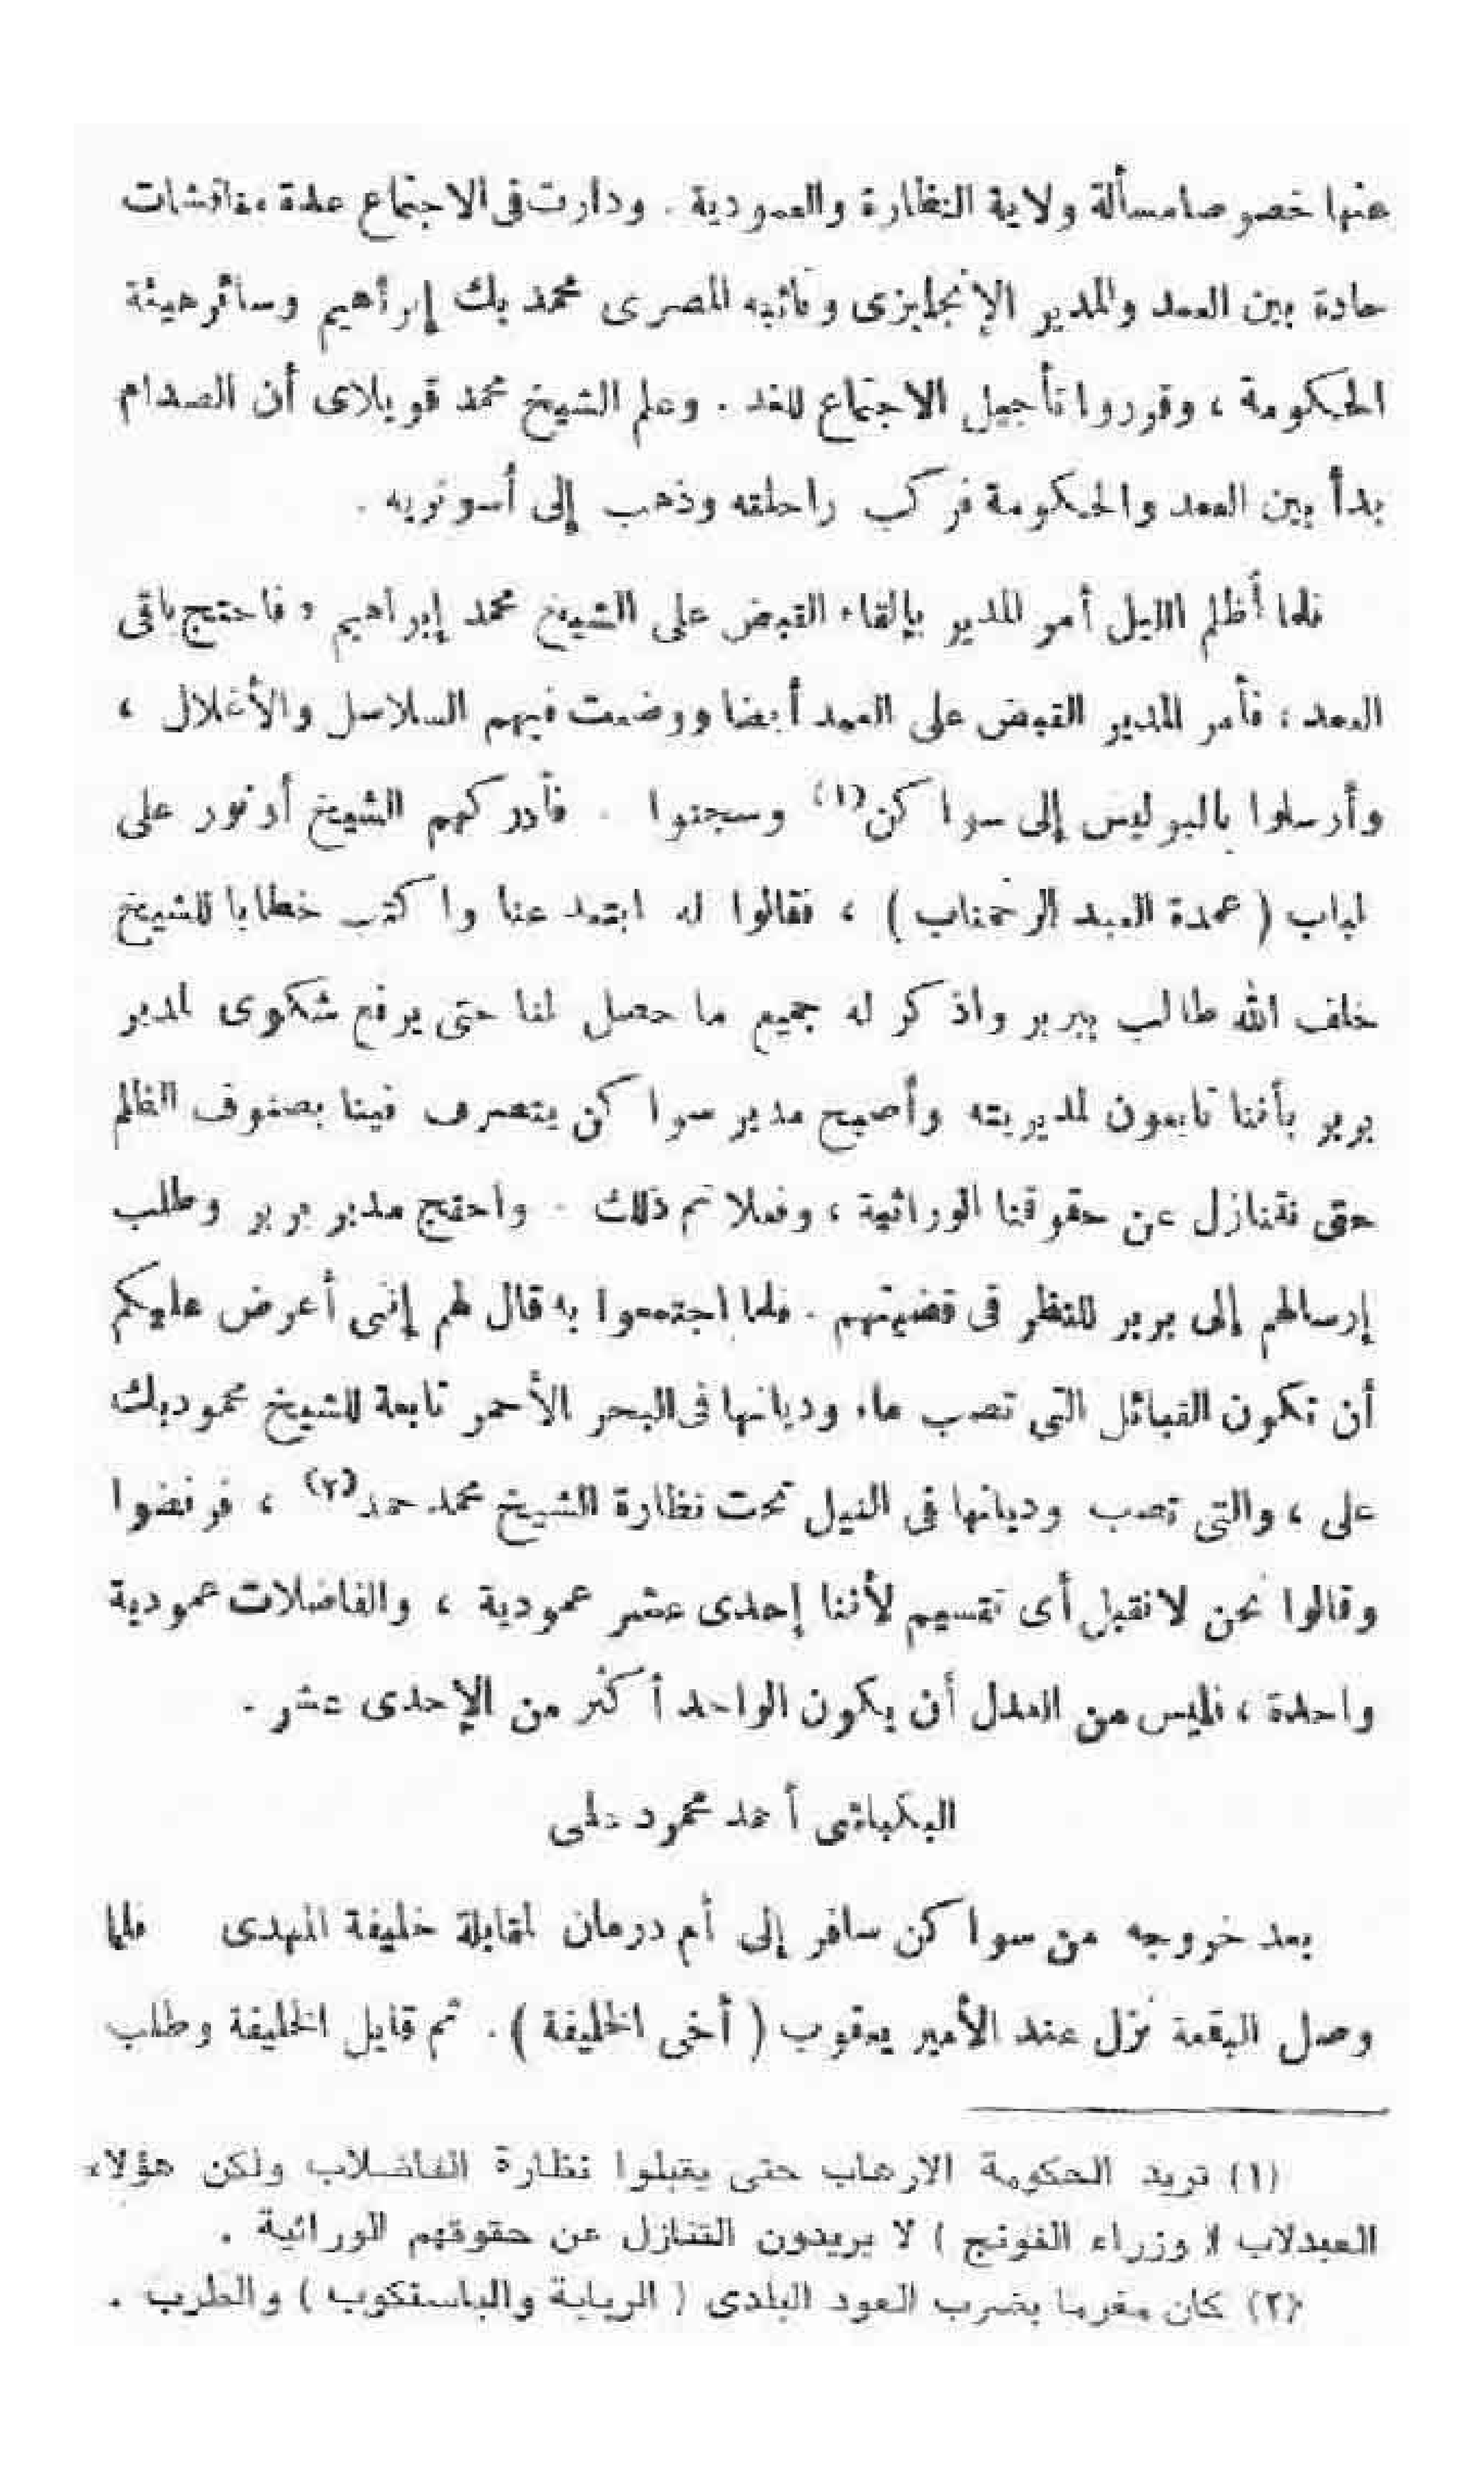 عنها خصوصا مسألة ولاية النظارة والعمودية . ودارت فى الاجتماع عدة مناقشات
حادة بين العمد والمدير الإنجليزى ونائبه المصرى محمد بك إبراهيم وسائر هيئة
الحكومة ، وقرروا تأجيل الاجتماع للغد . وعلم الشيخ محمد قويلاى أن الصدام
بدأ بين العمد والحكومة فركب راحلته وذهب إلى أسوتريه .
فلما أظلم الليل أمر المدير بإلقاء القبض على الشيخ محمد إبراهيم ، فاحتج باقى
العمد ؛ فأمر المدير القبض على العمد أيضا ووضعت فيهم السلاسل والأغلال ،
وأرسلوا بالبوليس إلى سواكن (١) وسجنوا . فأدركهم الشيخ أونور على
لباب ( عمدة العبد الرحمناب ) ، فقالوا له ابتعد عنا واكتب خطابا للشيخ
خلف الله طالب ببربر واذكر له جميع ما حصل لنا حتى يرفع شكوى لمدير
بربر بأننا تابعون لمديريته وأصبح مدير سواكن يتصرف فينا بصنوف الظلم
حتى نتنازل عن حقوقنا الوراثية ، وفعلا تم ذلك . واحتج مدير بربر وطلب
إرسالهم إلى بربر للنظر فى قضيتهم . فلما اجتمعوا به قال لهم إننى أعرض عليكم
أن تكون القبائل التى تصب ماء وديانها فى البحر الأحمر تابعة للشيخ محمود بك
على ، والتى تصب وديانها فى النيل تحت نظارة الشيخ محمد حمد (٢) ، فرفضوا
وقالوا نحن لا نقبل أى تقسيم لأننا إحدى عشر عمودية ، والفاضلات عمودية
واحدة ، فليس من العدل أن يكون الواحد أكثر من الإحدى عشر .
البكباشى أحمد محمود على
بعد خروجه من سواكن سافر إلى أم درمان لمقابلة خليفة المهدى فلما
وصل البقعة نزل عند الأمير يعقوب ( أخى الخليفة ) . ثم قابل الخليفة وطلب
(١) تريد الحكومة الارهاب حتى يقبلوا نظارة الفاضلاب ولكن هؤلاء
العبدلاب ( وزراء الفونج ) لا يريدون التنازل عن حقوقهم الوراثية .
(٢) كان مغرما بضرب العود البلدى ( الربابة والباسنكوب ) والطرب .